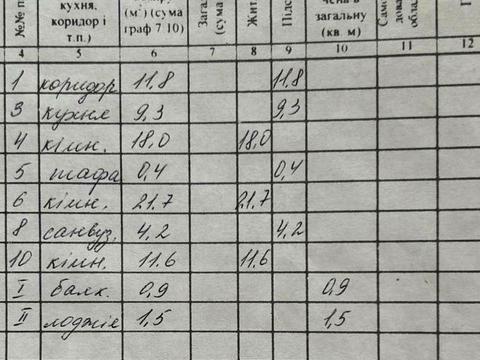 №№ п
кухня,
коридор і
т.п.)
(м²) (сума
граф 7 10)
Зага
(сума
Жит
Підс
чена в
загальну
(кв. м)
Само
дова
облад
П
4 5 6 7 8 9 10 11 12
1 коридор 11,8 11,8
3 кухня 9,3 9,3
4 кімн. 18,0 18,0
5 шафа 0,4 0,4
6 кімн. 21,7 21,7
8 санвуз. 4,2 4,2
10 кімн. 11.6 11.6
I балк. 0,9 0,9
II лоджія 1,5 1,5